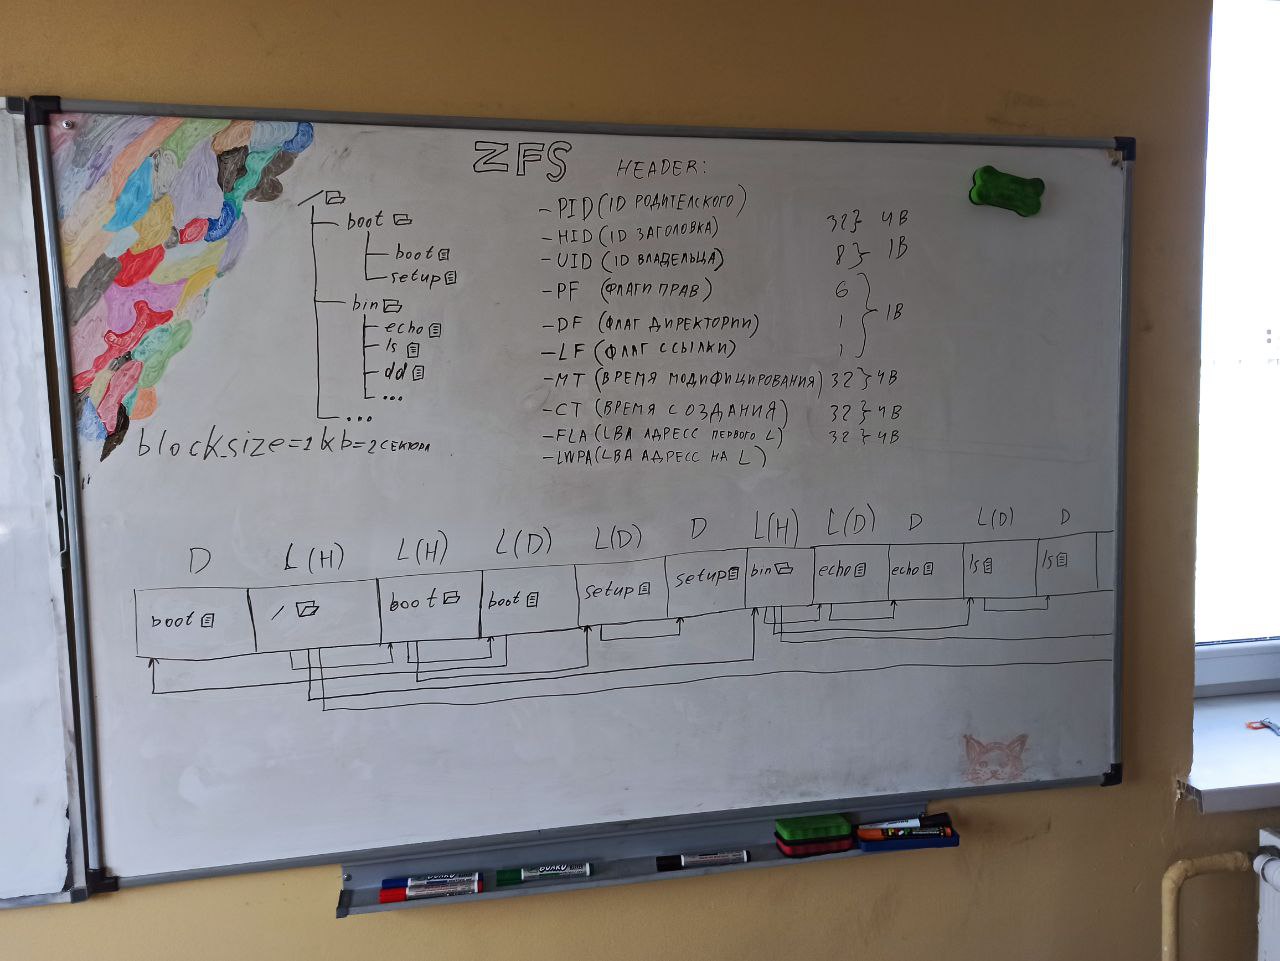 ZFS HEADER:
/
boot
boot
setup
bin
echo
ls
dd
...
...
block_size=1kb=2 СЕКТОРА
-PID(ID РОДИТЕЛСКОГО)
-HID(ID ЗАГОЛОВКА) 32} 4B
-UID(ID ВЛАДЕЛЬЦА) 8} 1B
-PF (ФЛАГИ ПРАВ) 6
-DF (ФЛАГ ДИРЕКТОРИИ) 1 } 1B
-LF (ФЛАГ ССЫЛКИ) 1
-MT (ВРЕМЯ МОДИФИЦИРОВАНИЯ) 32} 4B
-CT (ВРЕМЯ СОЗДАНИЯ) 32} 4B
-FLA(LBA АДРЕСС ПЕРВОГО L) 32} 4B
-LWPA(LBA АДРЕСС НА L)
D L(H) L(H) L(D) L(D) D L(H) L(D) D L(D) D
boot / boot boot setup setup bin echo echo ls ls